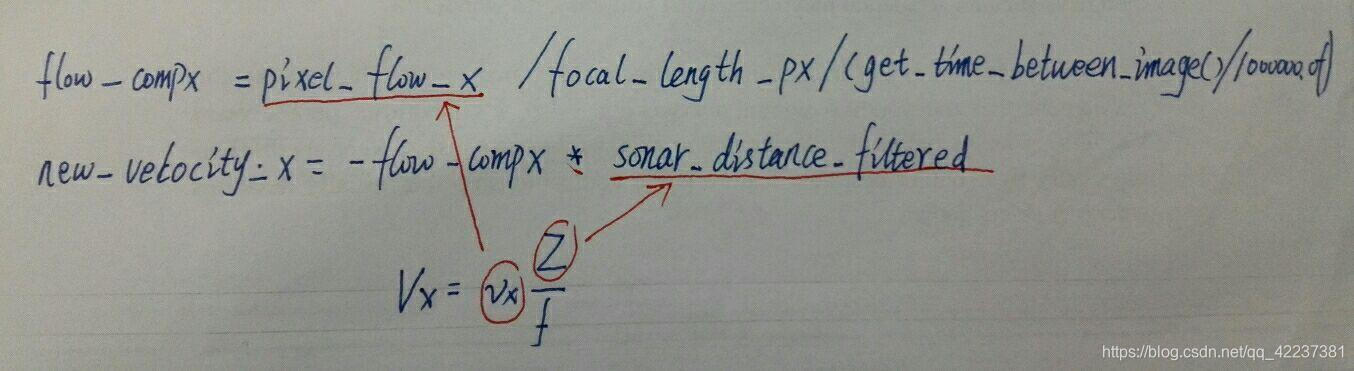 flow_compx = pixel_flow_x /focal_length_px/(get_time_between_image()/1000000.0f)
new_velocity_x = -flow_compx * sonar_distance_filtered
Vx = vx Z/f
https://blog.csdn.net/qq_42237381